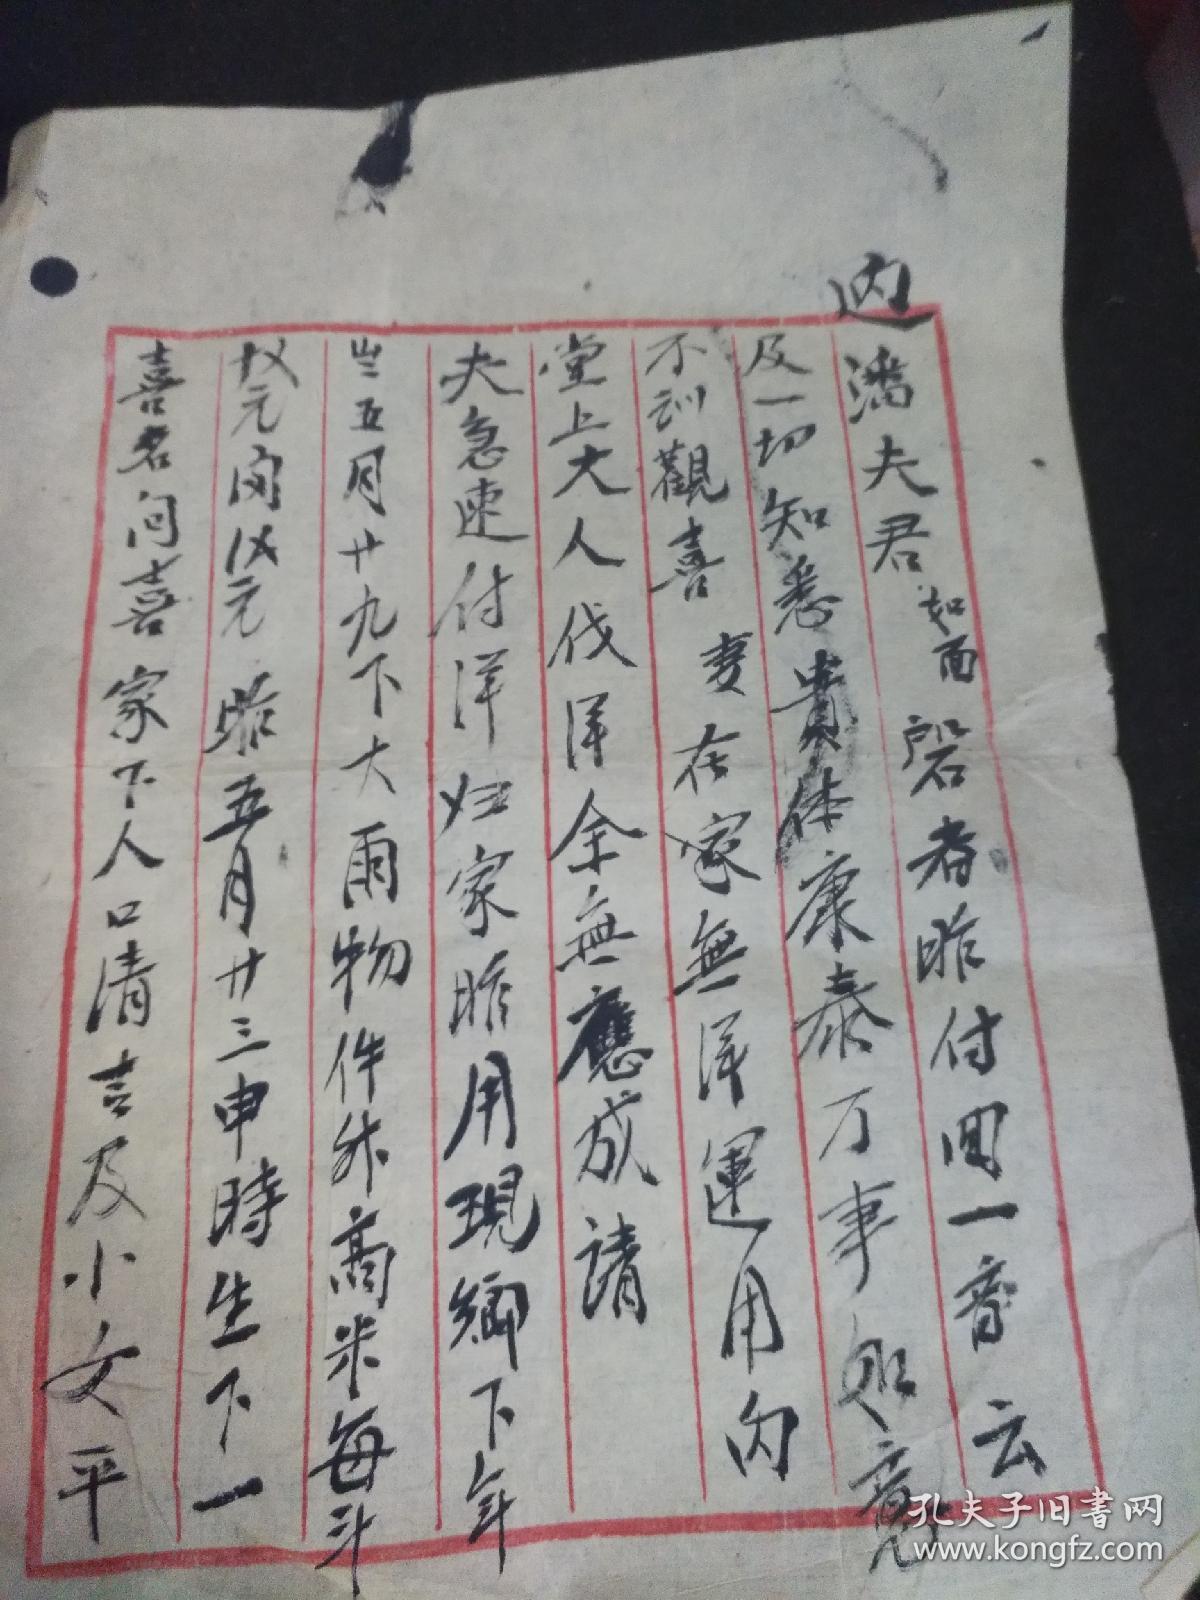 内
潘夫君如面 啓者昨付回一音云
及一切知悉貴体康泰万事如意
不訓觀喜 妻在家無洋運用内
堂上大人伐洋余無應成請
夫急速付洋归家昨用現鄉下年
岂五月廿九下大雨物件外高米每斗
元肉元 昨五月廿三申時生下一
喜名问喜家下人口清吉及小女平
孔夫子旧书网
www.kongfz.com